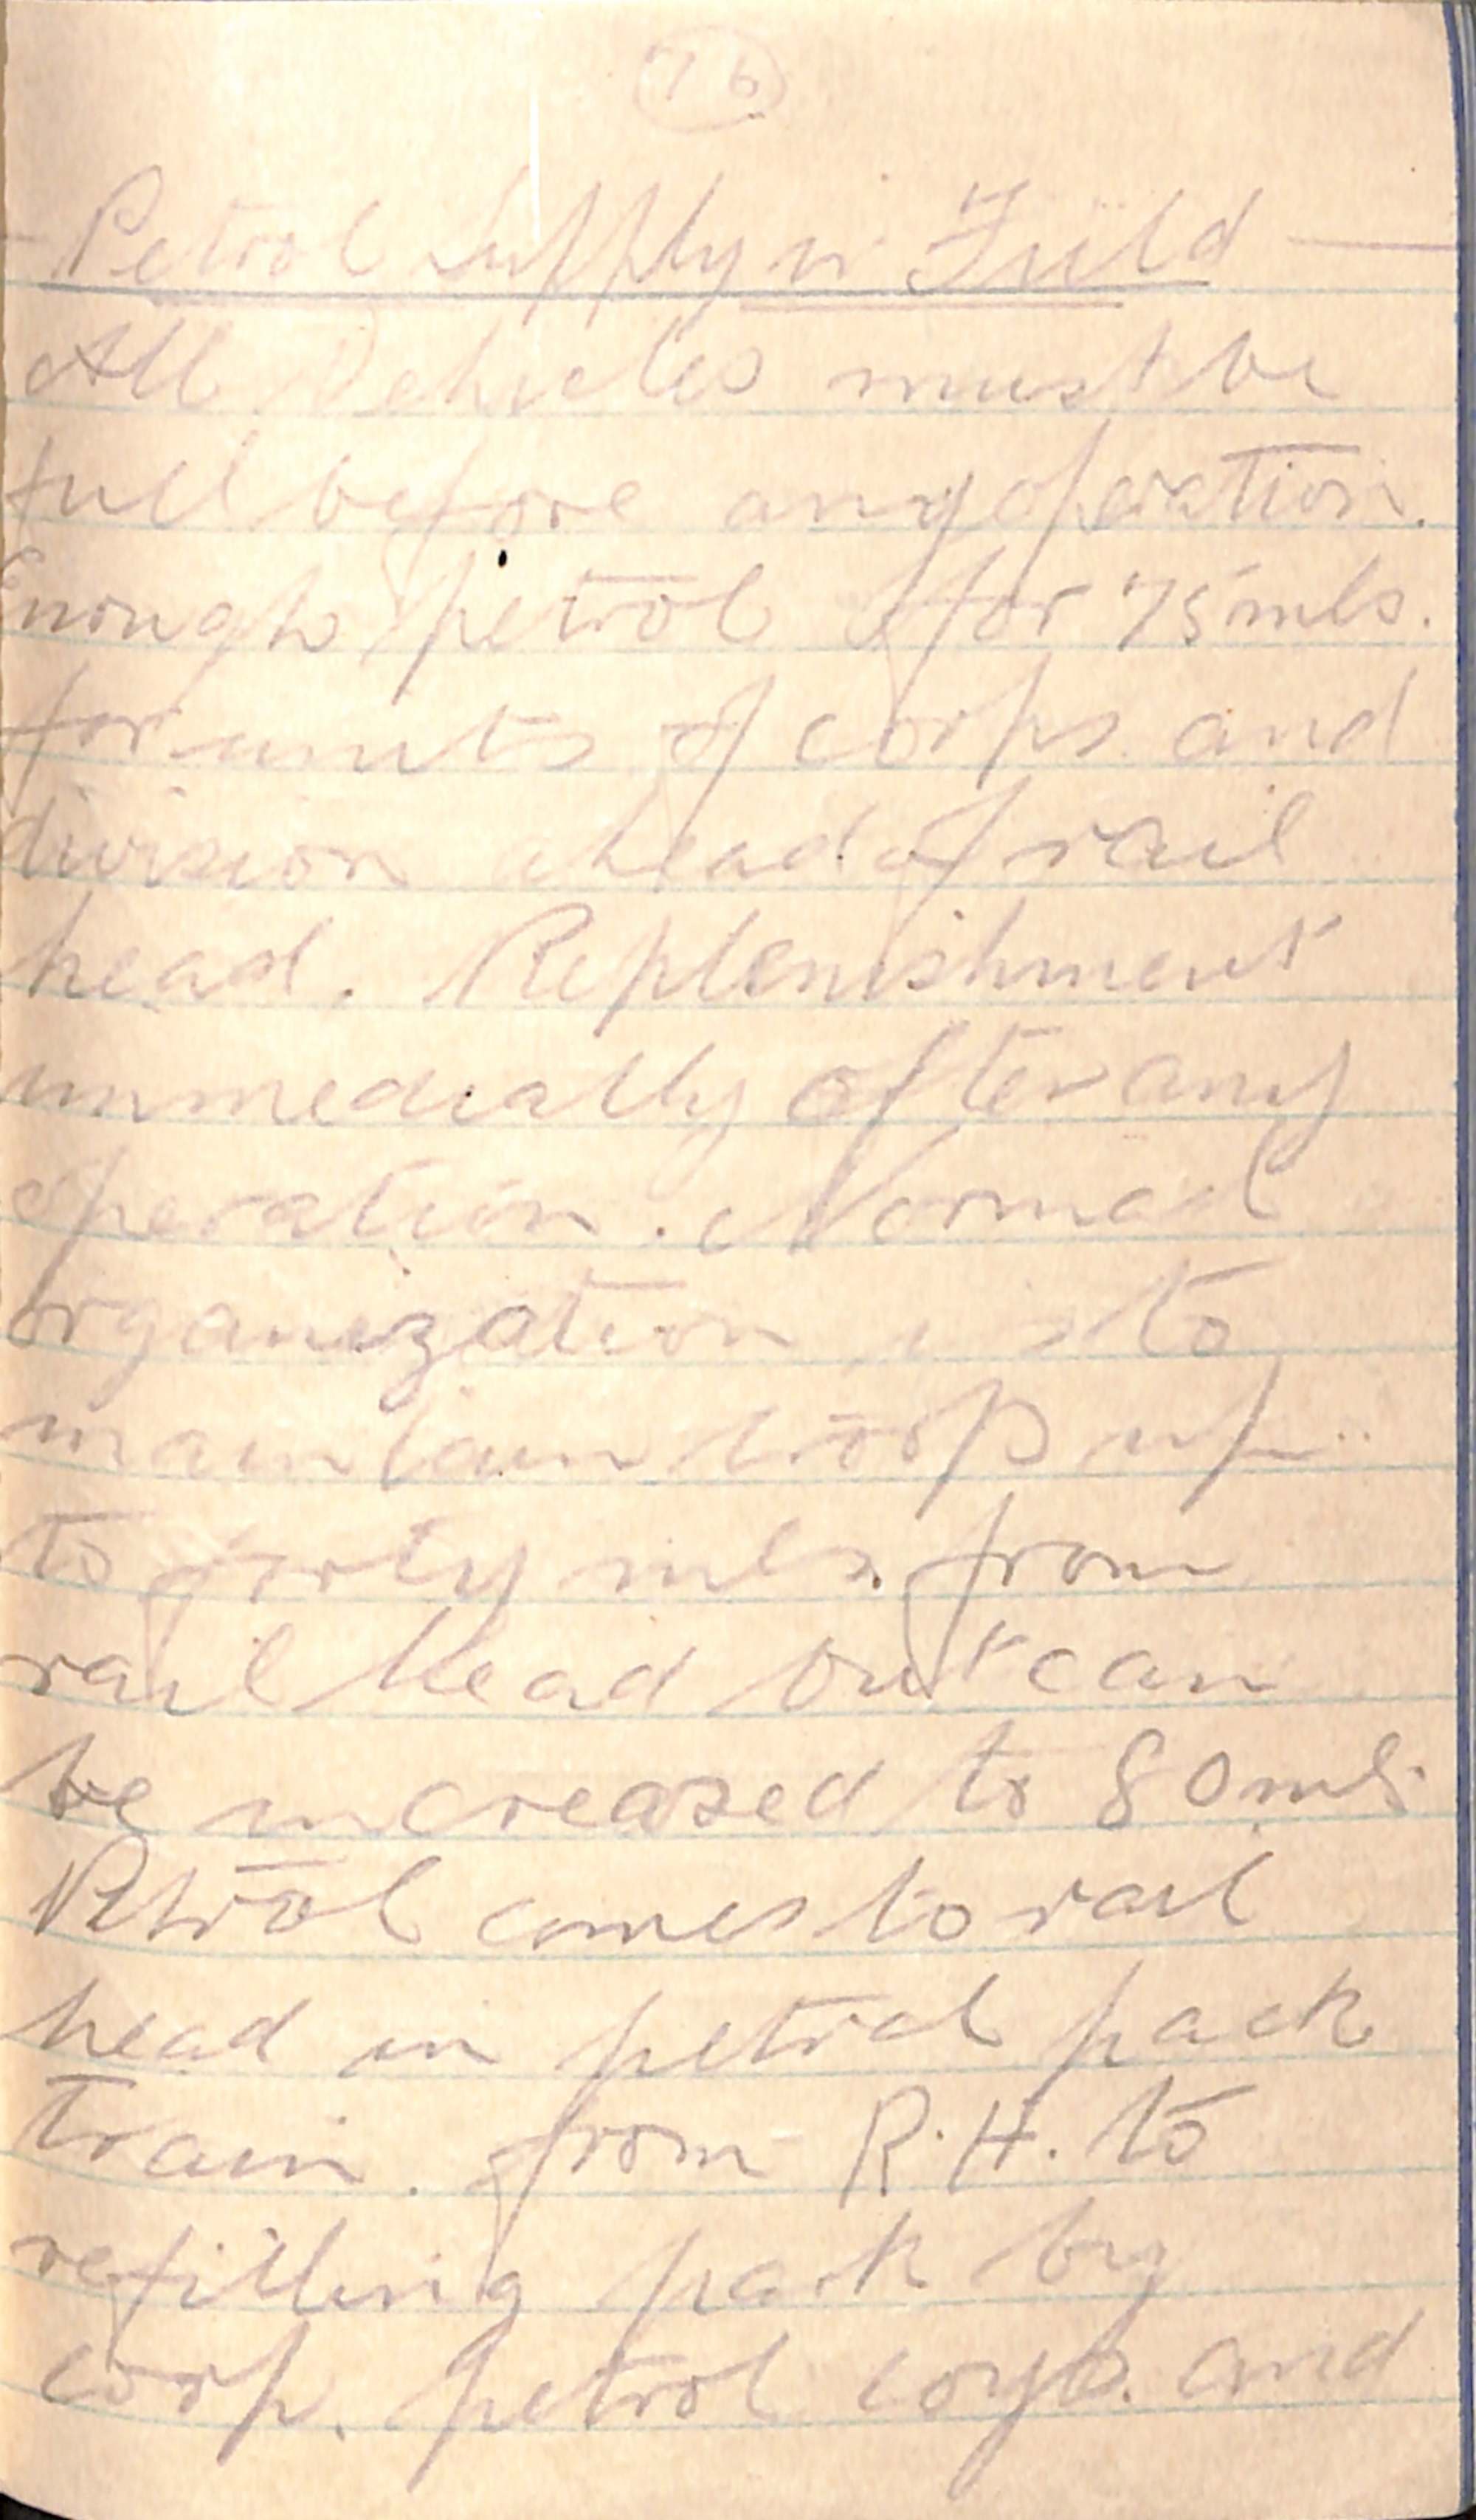 76
- Petrol Supply in Field -
All Vehicles must be
full before any operation.
Enough petrol for 75 mls.
for units of corps and
division ahead of rail
head. Replenishment
immediatly after any
operation. Normal
organization is to
maintain troops up
to forty mls. from
rail head but can
be increased to 80 mls.
Petrol comes to rail
head in petrol pack
train. from R.H. to
refilling park by
corp. petrol coys. and